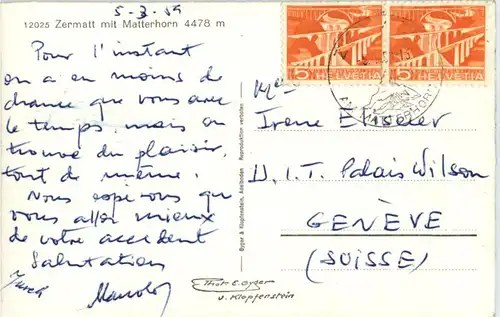 5-3-59
12025 Zermatt mit Matterhorn 4478 m
Pour l'instant
on a en moins de
chance que vous avec
le temps, mais on
trouve du plaisir
tout de même.
Nous espérons que
vous aller mieux
de votre accident
Salutation
Byger & Klopfenstein, Adelboden Reproduktion verboten
Photo E. Gyger
v. Klopfenstein
5 HELVETIA
5 HELVETIA
Irene
U.I.T. Palais Wilson
GENÈVE
(SUISSE)